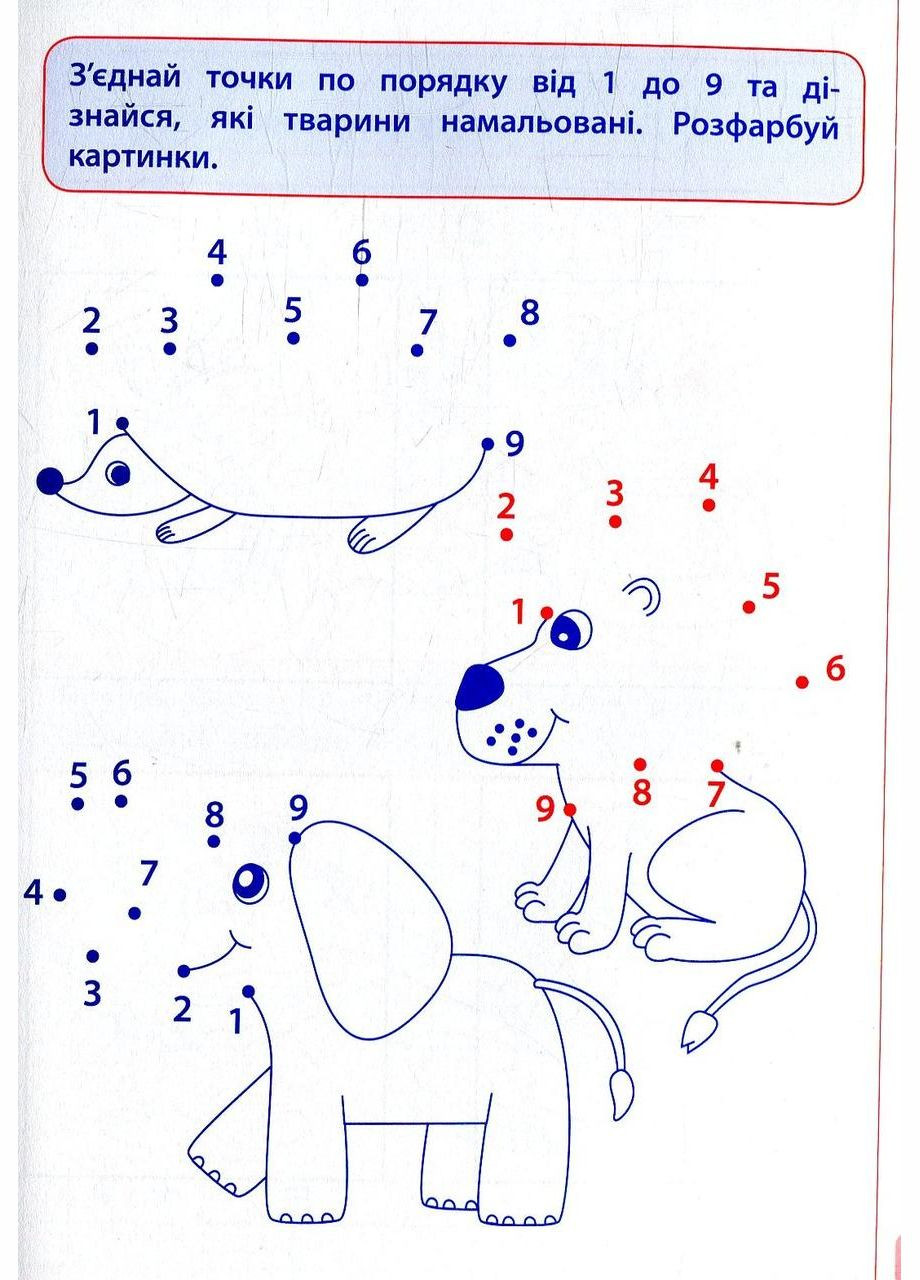 З'єднай точки по порядку від 1 до 9 та ді-
знайся, які тварини намальовані. Розфарбуй
картинки.
4 6
2 3 5 7 8
1 9
2 3 4
1 5
6
8 7
9
5 6 8 9
4 7
3 2 1